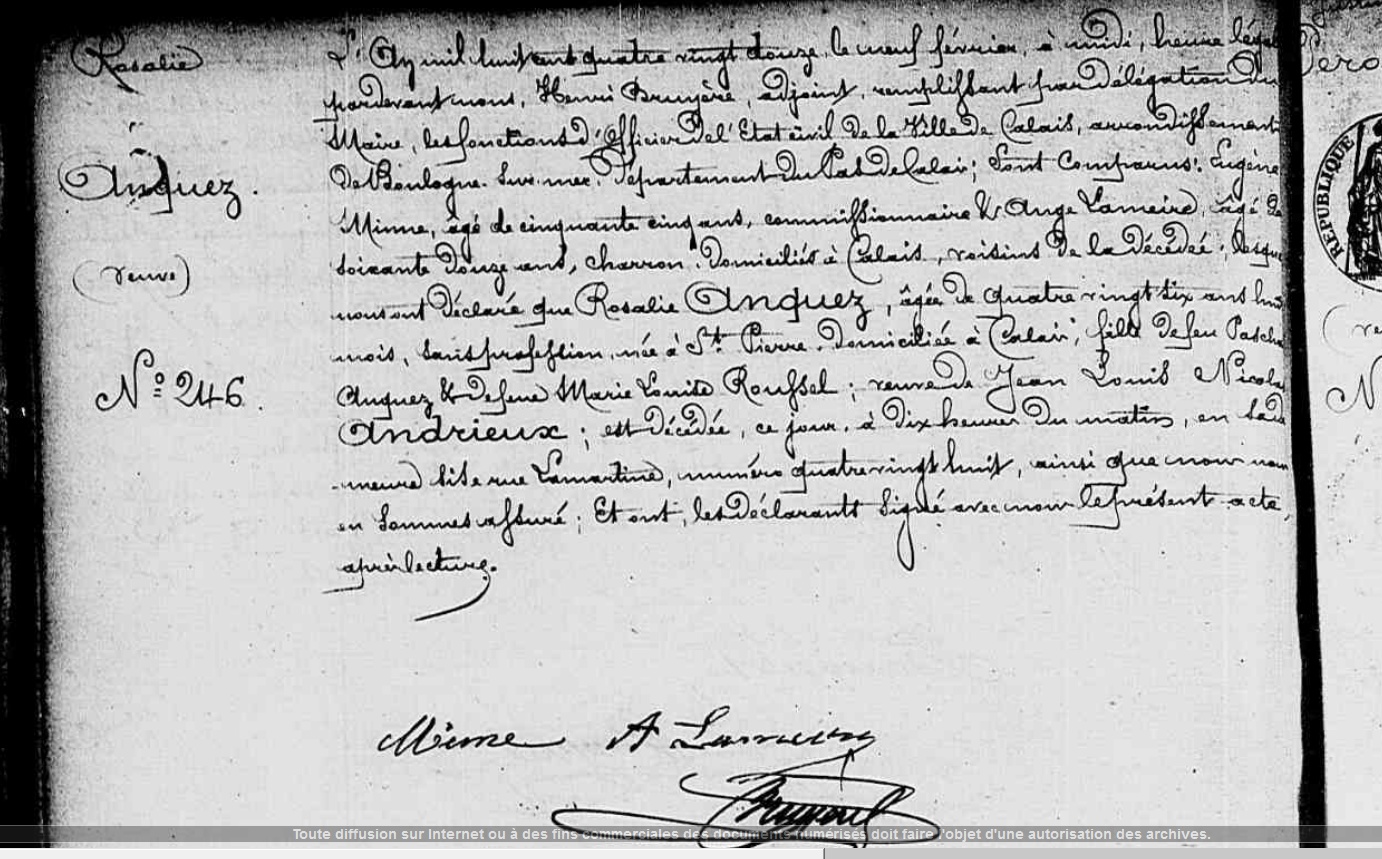 Rosalie
Anquez.
(veuve)
Nº 246.
L'An mil huit cent quatre vingt douze, le neuf février, à midi, heure légale
pardevant nous, Henri Bruyère, adjoint, remplissant par délégation du
Maire, les fonctions d'Officier de l'Etat civil de la Ville de Calais, arrondissement
de Boulogne-sur-mer, Département du Pas de Calais; Sont Comparus: Eugène
Minne, âgé de cinquante cinq ans, commissionnaire & Ange Lameire, âgé de
soixante douze ans, charron, domiciliés à Calais, voisins de la décédée; lesquels
nous ont déclaré que Rosalie Anquez, âgée de quatre vingt six ans huit
mois, sans profession, née à St. Pierre, domiciliée à Calais, fille de feu Pascha
Anquez & de feue Marie Louise Roussel; veuve de Jean Louis Nicolas
Andrieux; est décédée, ce jour, à dix heures du matin, en sa de
meure sise rue Lamartine, numéro quatre vingt huit, ainsi que nous nous
en sommes assuré; Et ont, les déclarants signé avec nous le présent acte,
après lecture.
Minne A Lameire
Bruyère
REPUBLIQUE
Toute diffusion sur Internet ou à des fins commerciales des documents numérisés doit faire l'objet d'une autorisation des archives.